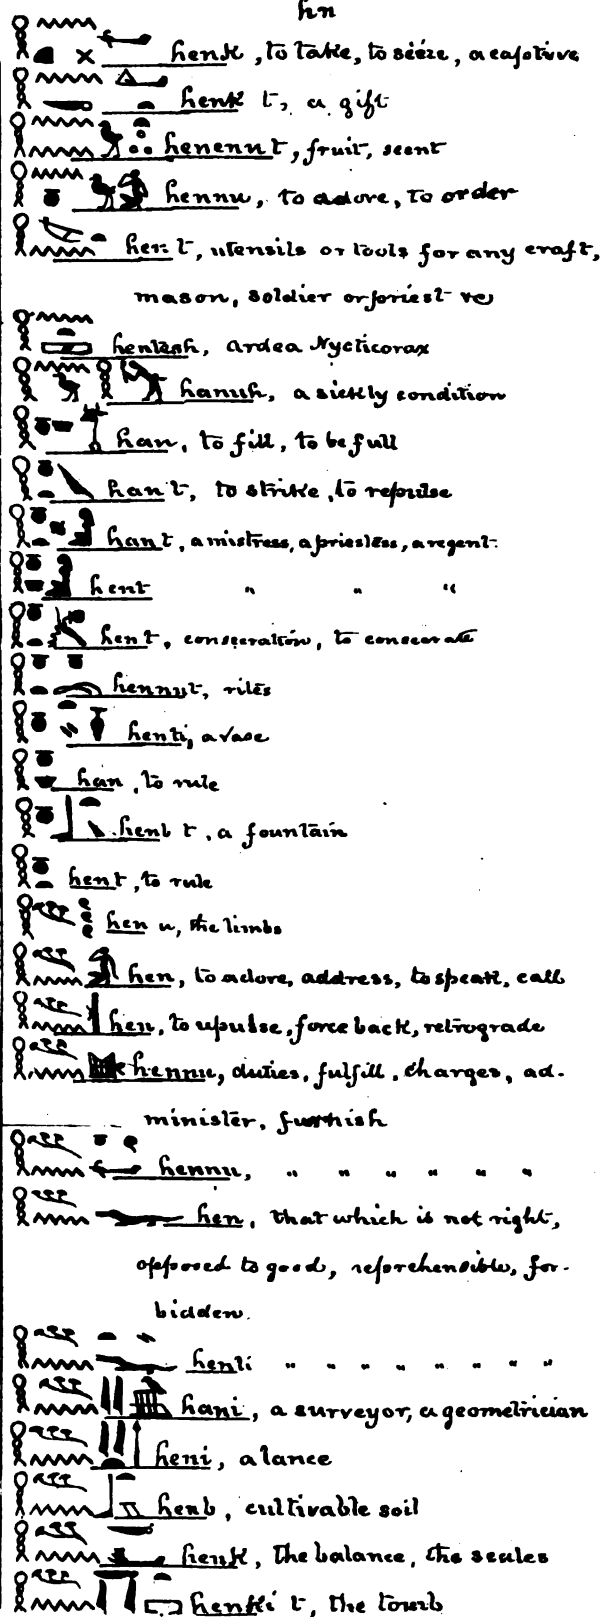 hn
henk, to take, to seize, a captive
henk t, a gift
henennut, fruit, scent
hennu, to adore, to order
hent, utensils or tools for any craft,
mason, soldier or priest
hentesh, Ardea Nycticorax
hanuh, a sickly condition
han, to fill, to be full
hant, to strike, to repulse
hant, a mistress, a priestess, a regent.
hent " " "
hent, consecration, to consecrate
hennut, rites
henti, a vase
han, to rule
henb t, a fountain
hent, to rule
hen u, the limbs
hen, to adore, address, to speak, call
hen, to upulse, force back, retrograde
hennu, duties, fulfill, charges, ad-
minister, furnish
hennu, " " " " " "
hen, that which is not right,
opposed to good, reprehensible, for-
bidden.
henti " " " " " " "
hani, a surveyor, a geometrician
heni, a lance
henb, cultivable soil
henk, the balance, the scales
henki t, the tomb